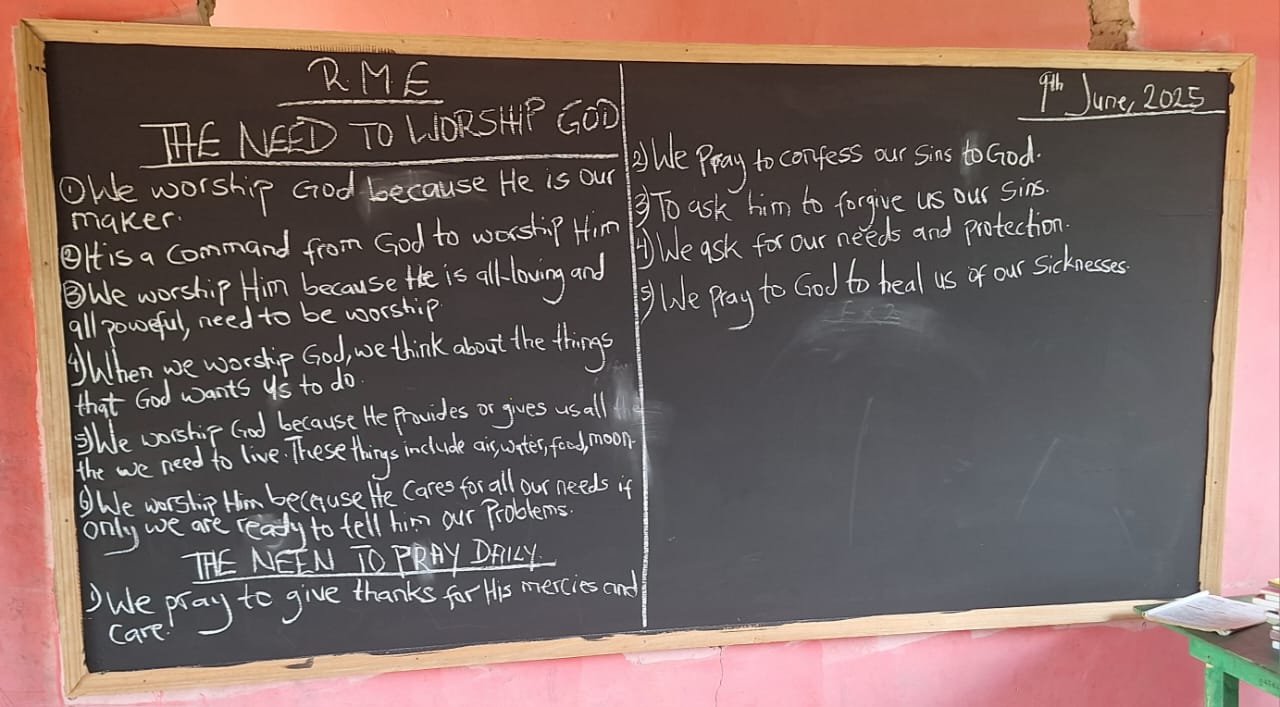 R.M.E
THE NEED TO WORSHIP GOD
① We worship God because He is our
maker.
② It is a command from God to worship Him
③ We worship Him because He is all-loving and
all poweful, need to be worship.
4) When we worship God, we think about the things
that God wants us to do.
5) We worship God because He provides or gives us all the
the we need to live. These things include air, water, food, moon.
6) We worship Him because He cares for all our needs if
only we are ready to tell him our Problems.
THE NEEN TO PRAY DAILY.
1) We pray to give thanks for His mercies and
care.
9th June, 2025
2) We Pray to confess our Sins to God.
3) To ask him to forgive us our Sins.
4) We ask for our needs and protection.
5) We pray to God to heal us of our Sicknesses.
Ex 2